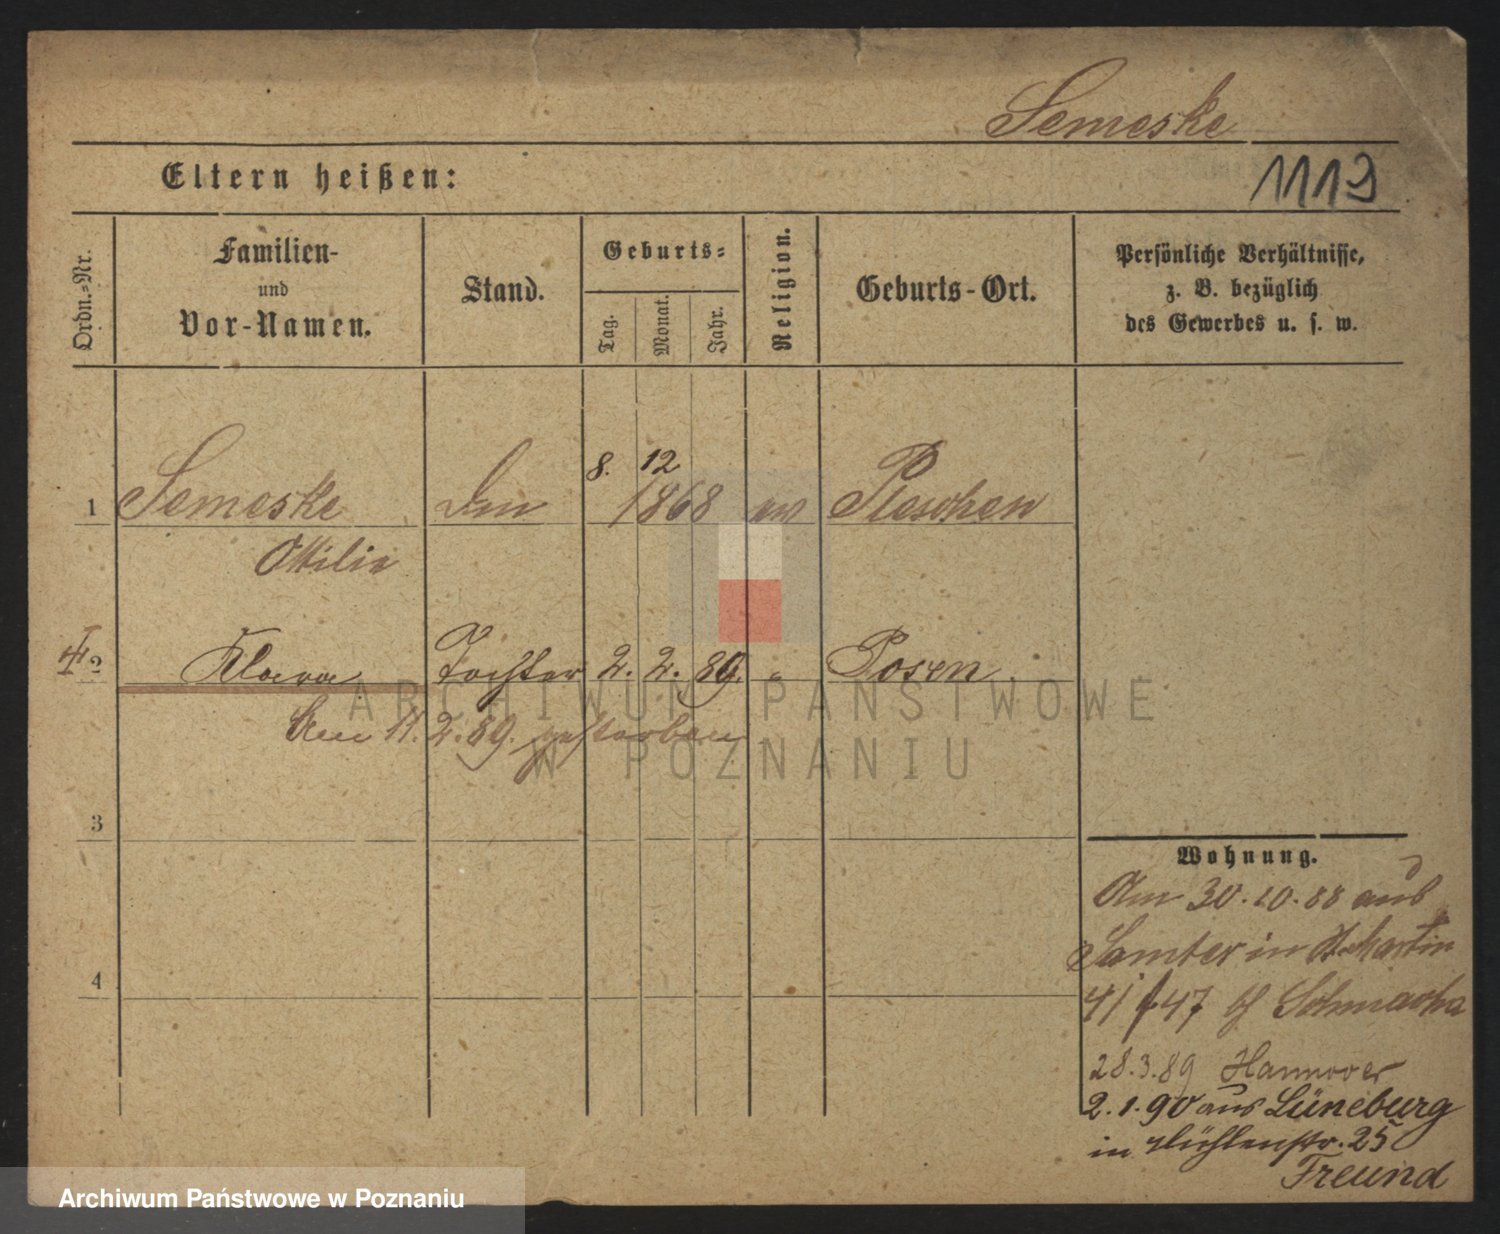 Semeske
Eltern heißen:
1119
Ordn.=Nr.
Familien-
und
Vor-Namen.
Stand.
Geburts=
Tag.
Monat.
Jahr.
Religion.
Geburts-Ort.
Persönliche Verhältnisse,
z. B. bezüglich
des Gewerbes u. s. w.
8. 12
1 Semeske 1868 ev Pleschen
Ottilie
2 Klara Tochter 2. 2. 89. " Posen
Am 11. 2. 89. gestorben
3
4
Wohnung.
Am 30.10.88 aus
Samter in St Martin
47
28.3.89 Hannover
2.1.90 aus Lüneburg
in Mühlenstr. 25
Freund
ARCHIWUM PAŃSTWOWE
W POZNANIU
Archiwum Państwowe w Poznaniu